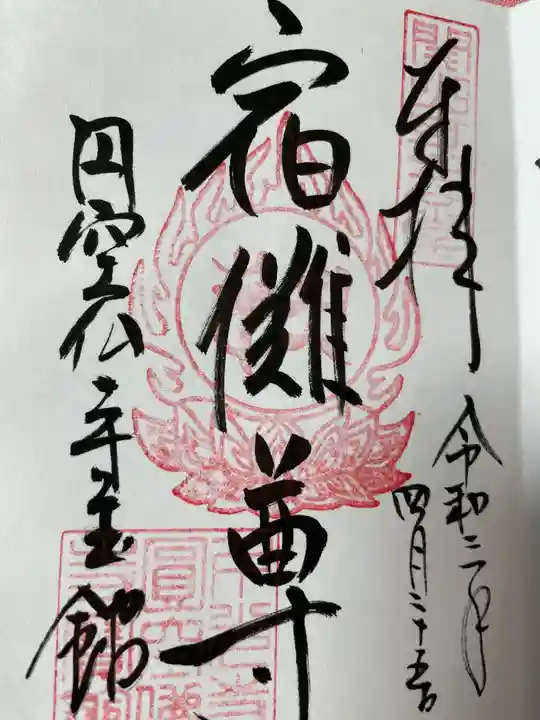 奉拝
令和三年
四月二十五日
宿儺尊
円空仏寺宝館